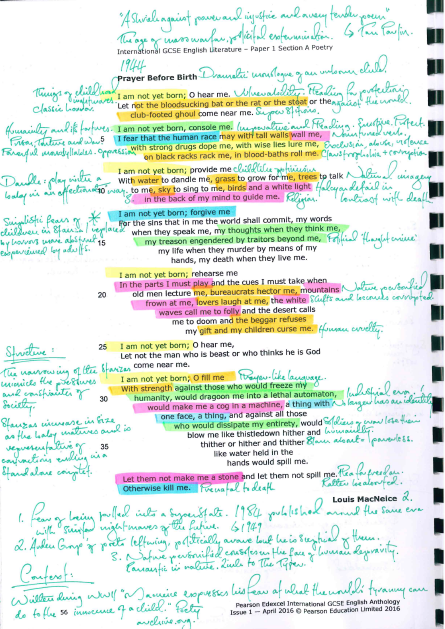 "A shriek against power and injustice and a very tender poem"
The age of mass warfare, political extermination. Ian Parton.
International GCSE English Literature – Paper 1 Section A Poetry
1944
Prayer Before Birth Dramatic monologue of an unborn child.
I am not yet born; O hear me. Vulnerability. Pleading for protection
Let not the bloodsucking bat or the rat or the stoat or the against the world.
club-footed ghoul come near me. Superstitions.
Things of childhood nightmares. Classic London
I am not yet born, console me. Imperative and Pleading.
5 I fear that the human race may with tall walls wall me,
with strong drugs dope me, with wise lies lure me,
on black racks rack me, in blood-baths roll me. Claustrophobic
Humanity and its tortures.
I am not yet born; provide me childlike
With water to dandle me, grass to grow for me, trees to talk Natural imagery
10 to me, sky to sing to me, birds and a white light contrast with death
in the back of my mind to guide me. Religion.
Dandle: play with a baby in an affectionate way.
I am not yet born; forgive me
For the sins that in me the world shall commit, my words
when they speak me, my thoughts when they think me,
15 my treason engendered by traitors beyond me,
my life when they murder by means of my
hands, my death when they live me.
Simplistic fears of children in Stanza 1 replaced by horrors more abstract experienced by adults.
I am not yet born; rehearse me
In the parts I must play and the cues I must take when
20 old men lecture me, bureaucrats hector me, mountains Nature personified
frown at me, lovers laugh at me, the white Shifts and becomes corrupted
waves call me to folly and the desert calls
me to doom and the beggar refuses
my gift and my children curse me. Human cruelty.
25 I am not yet born; O hear me,
Let not the man who is beast or who thinks he is God
come near me.
Structure:
The narrowing of the stanzas mimics the pressures and constraints of society.
I am not yet born; O fill me Prayer-like language.
With strength against those who would freeze my
30 humanity, would dragoon me into a lethal automaton, Industrial era.
would make me a cog in a machine, a thing with
one face, a thing, and against all those
who would dissipate my entirety, would
blow me like thistledown hither and
35 thither or hither and thither
like water held in the
hands would spill me.
Stanzas increase in size as the baby matures and is representative of ending in a standalone couplet.
Let them not make me a stone and let them not spill me. Plea for freedom.
Otherwise kill me. Prenatal to death
Louis MacNeice 2.
1. Fear of being pulled into a superstate. 1984 published around the same era
with similar nightmares of the future. 1949
2. Auden Group of poets leftwing, politically aware but he is sceptical of them.
3. Nature personified human depravity.
Romantic in nature. Link to The Tyger.
Context:
Written during WWII "MacNeice expresses his fear of what the world's tyranny can
do to the innocence of a child." Poetry archive.org.
56
Pearson Edexcel International GCSE English Anthology
Issue 1 — April 2016 © Pearson Education Limited 2016